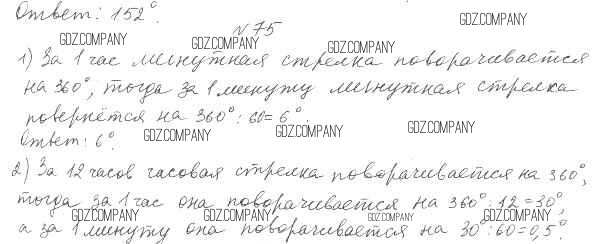 Ответ: 152°.
GDZ.COMPANY
№ 75
GDZ.COMPANY GDZ.COMPANY GDZ.COMPANY
1) За 1 час минутная стрелка поворачивается
на 360°, тогда за 1 минуту минутная стрелка
повернётся на 360° : 60 = 6°.
Ответ: 6°.
GDZ.COMPANY GDZ.COMPANY GDZ.COMPANY
2) За 12 часов часовая стрелка поворачивается на 360°,
тогда за 1 час она поворачивается на 360° : 12 = 30°,
GDZ.COMPANY GDZ.COMPANY GDZ.COMPANY GDZ.COMPANY
а за 1 минуту она поворачивается на 30° : 60 = 0,5°